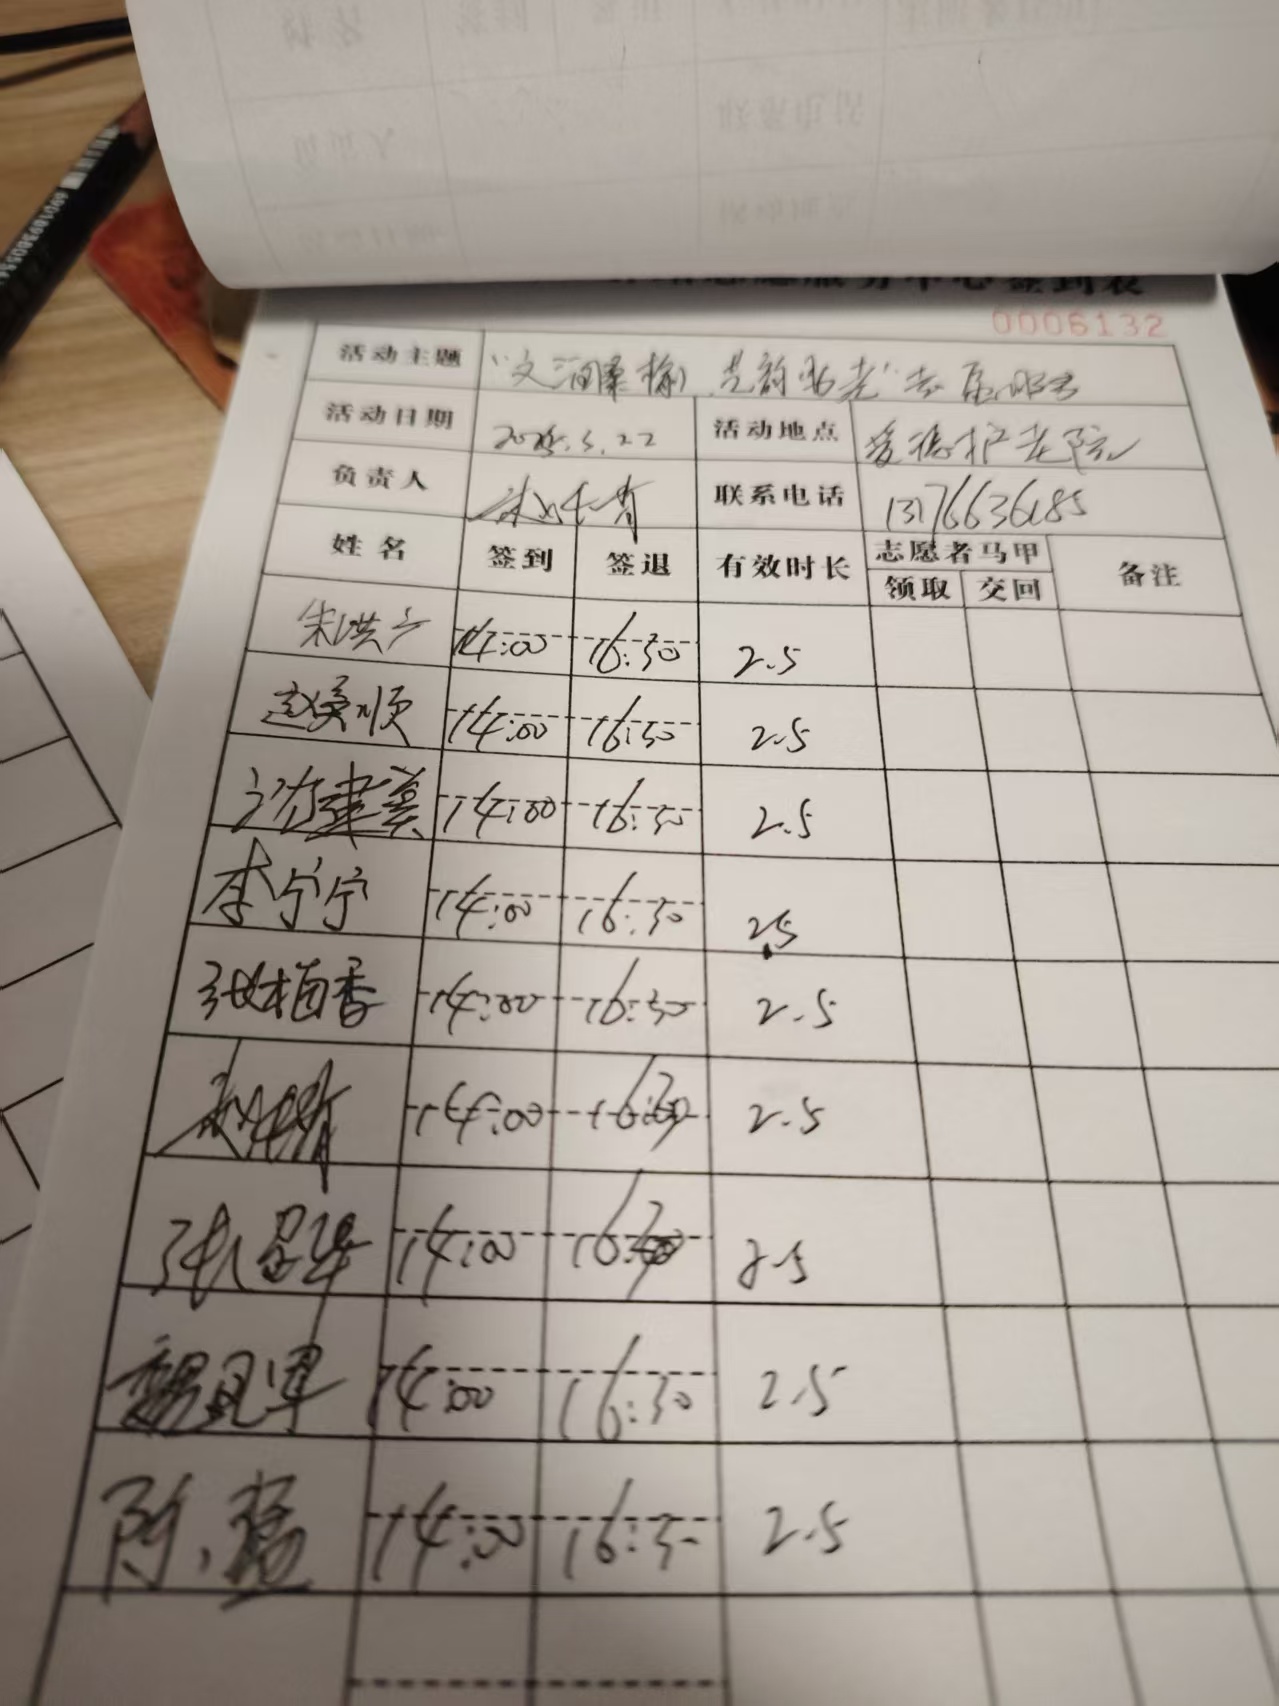 志愿服务中心签到表
0006132
活动主题 "文润桑榆 艺韵助老"志愿服务
活动日期 2025.3.22 活动地点 爱德护老院
负责人 联系电话
姓名 签到 签退 有效时长 志愿者马甲 备注
领取 交回
朱洪 14:00 16:30 2.5
赵美顺 14:00 16:30 2.5
沈建英 14:00 16:30 2.5
李宁宁 14:00 16:30 2.5
张梅香 14:00 16:30 2.5
14:00 16:30 2.5
张 华 14:00 16:30 2.5
魏凤军 14:00 16:30 2.5
陈 14:00 16:30 2.5